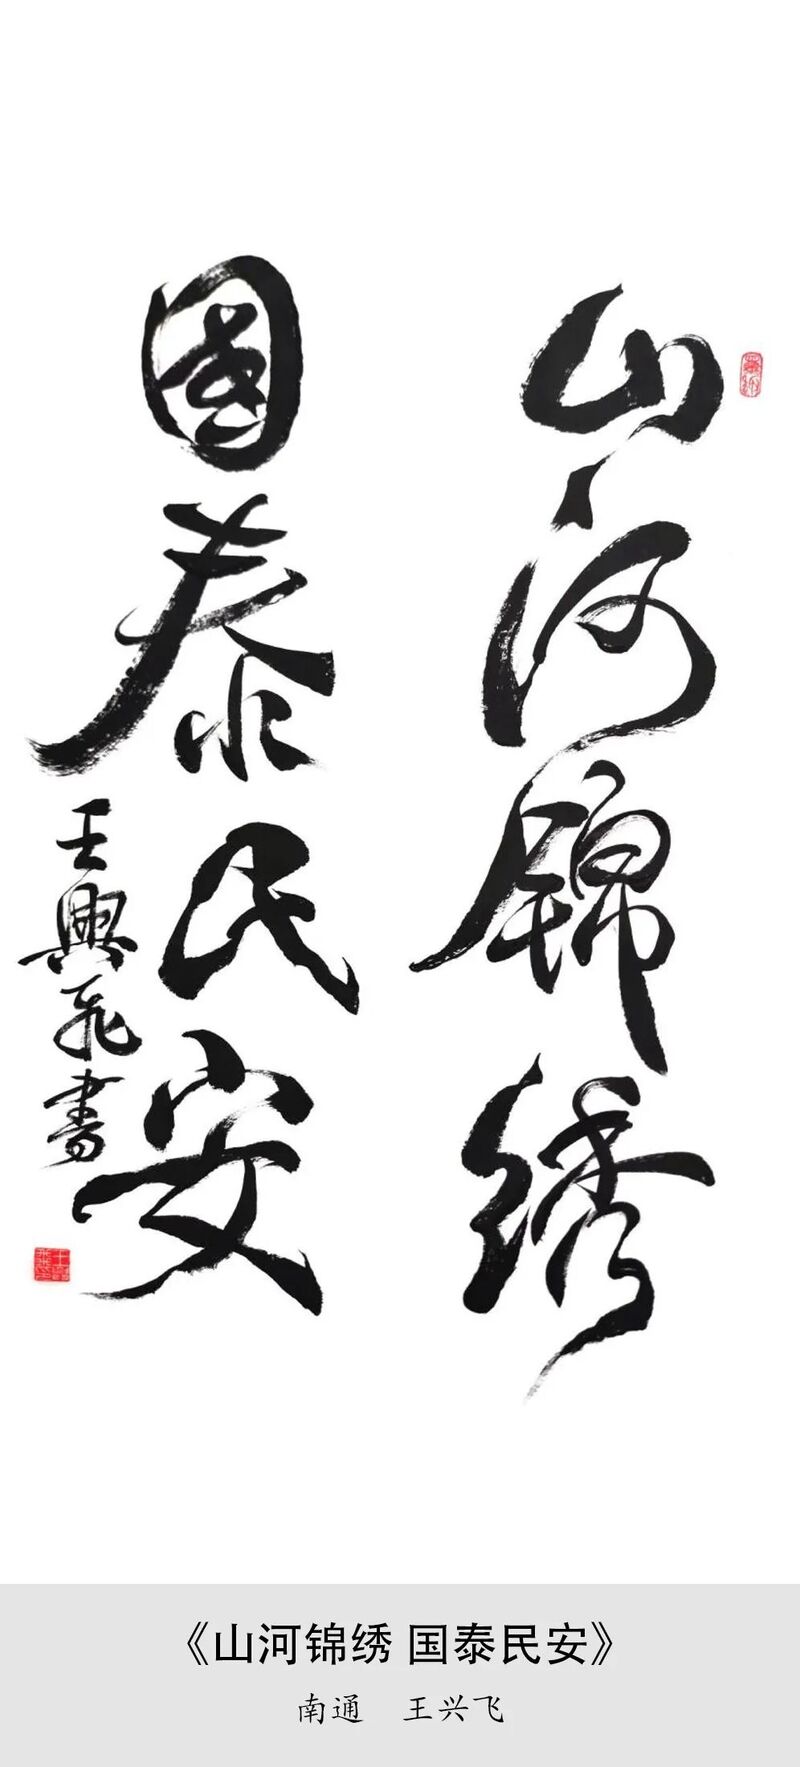 山河锦绣
國泰民安
王興飛書
《山河锦绣 国泰民安》
南通 王兴飞